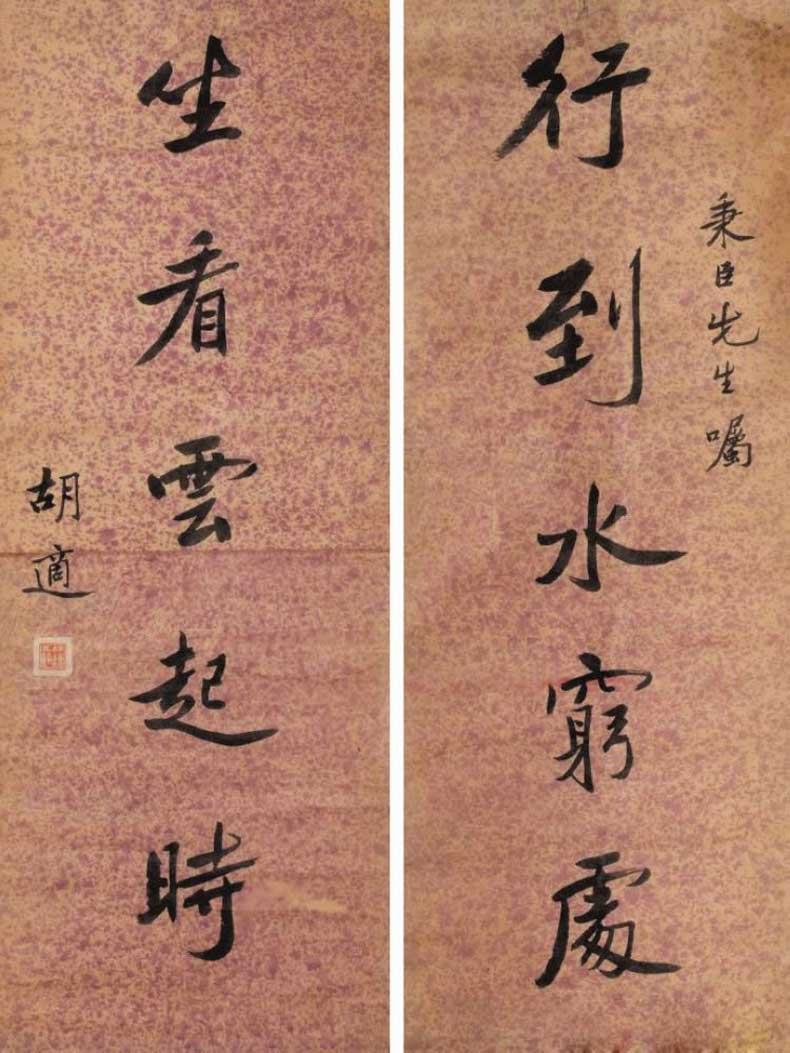 秉臣先生囑
行到水窮處
坐看雲起時
胡適